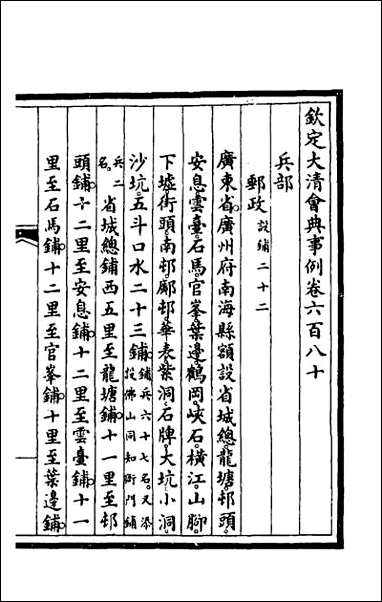 欽定大清會典事例卷六百八十
兵部
郵政設鋪二十二
廣東省廣州府南海縣額設省城總龍塘邨頭
安息雲臺石馬官峯葉邊鶴岡峽石橫江山腳
下墟街頭南邨鄺邨華表紫洞石牌大坑小洞
沙坑五斗口水二十三鋪鋪兵六十七名又添設佛山同知衙門鋪
兵二名省城總鋪西五里至龍塘鋪十一里至邨
頭鋪十二里至安息鋪十二里至雲臺鋪十一
里至石馬鋪十二里至官峯鋪十里至葉邊鋪